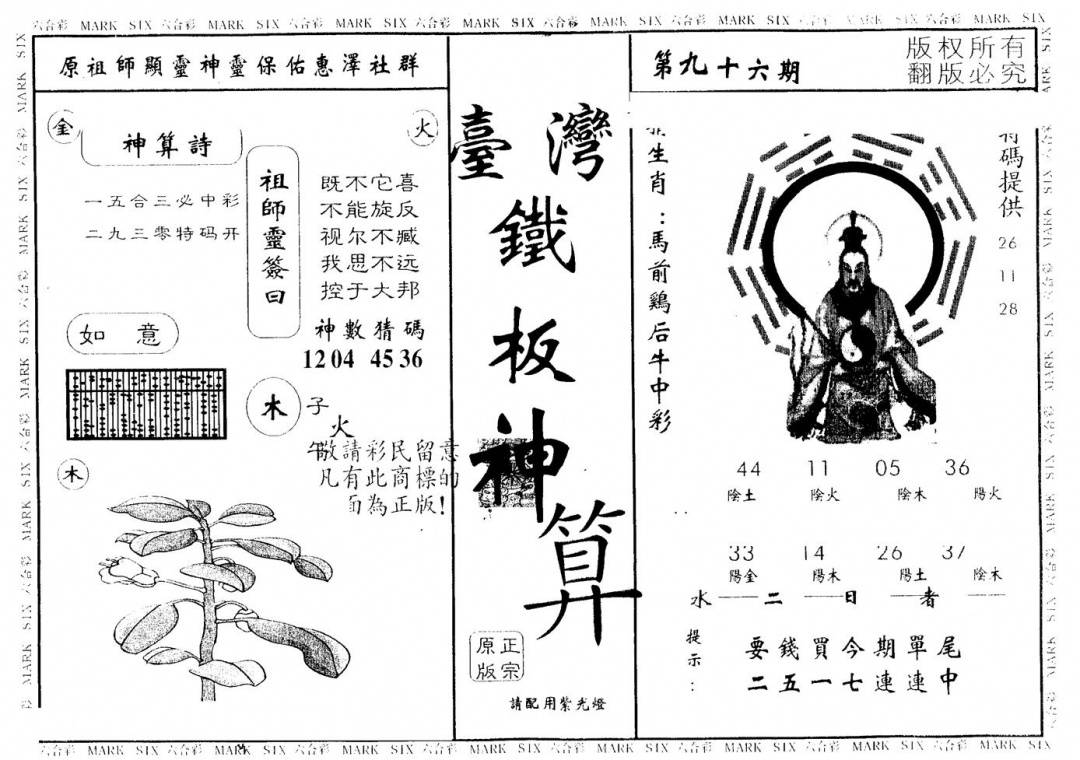 六合彩 MARK SIX 六合彩 MARK SIX 六合彩 MARK SIX 六合彩 MARK SIX 六合彩 MARK SIX 六合彩 MARK SIX 六合彩 MARK SIX 六合彩 MARK SIX
原祖師顯靈神靈保佑惠澤社群
金
火
神算詩
一五合三必中彩
二九三零特码开
祖師靈簽曰
既不它喜
不能旋反
视尔不臧
我思不远
控于大邦
如意
神數猜碼
12 04 45 36
木
子
火
午
敬請彩民留意
凡有此商標的
為正版!
木
臺灣
鐵
板
神
算
正宗
原版
請配用紫光燈
第九十六期
版权所有
翻版必究
生肖:馬前鷄后牛中彩
碼提供
26
11
28
44 11 05 36
陰土 陰火 陰木 陽火
33 14 26 37
陽金 陽木 陽土 陰木
水——二——日——者——
提示:
要錢買今期單尾
二五一七連連中
六合彩 MARK SIX 六合彩 MARK SIX 六合彩 MARK SIX 六合彩 MARK SIX 六合彩 MARK SIX 六合彩 MARK SIX 六合彩 MARK SIX 六合彩 MARK SIX